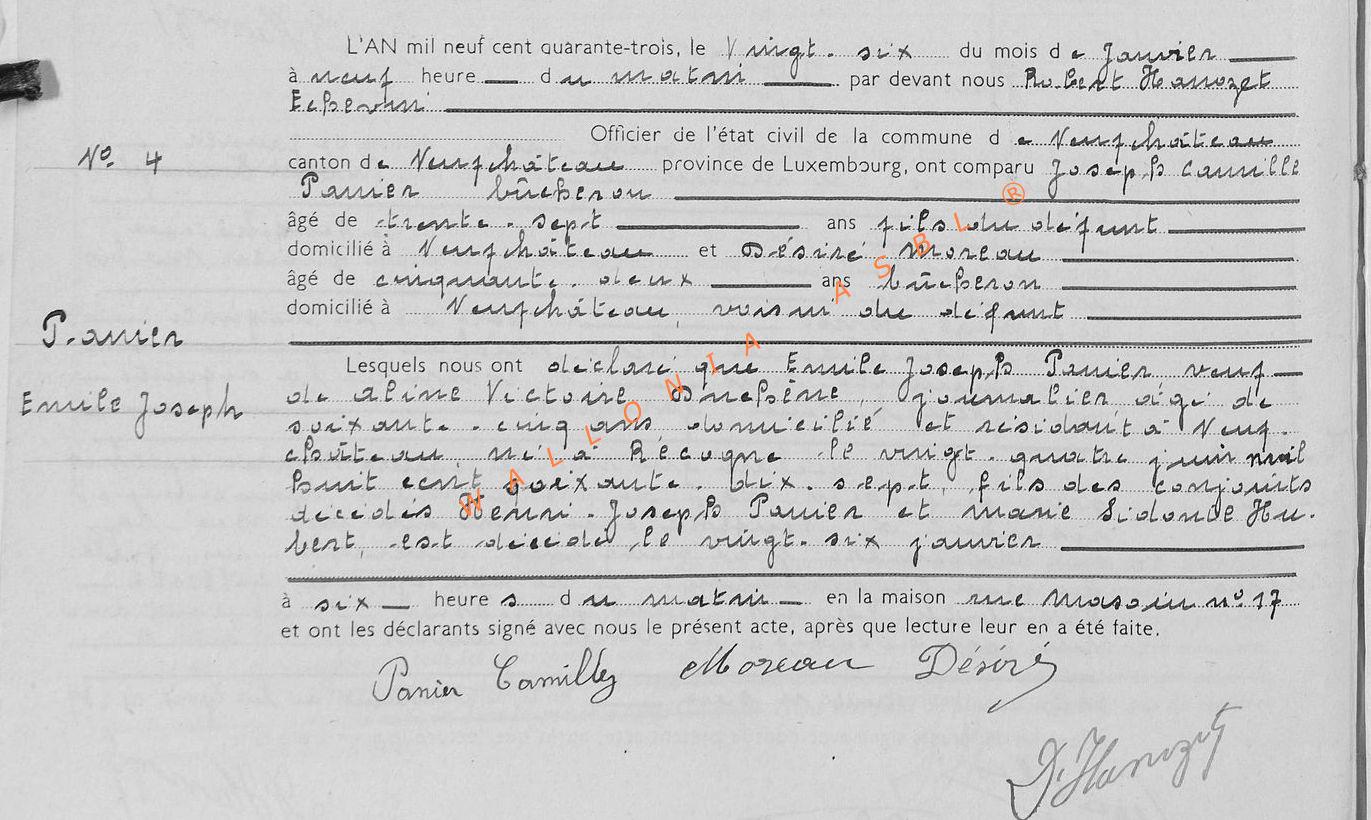 L'AN mil neuf cent quarante-trois, le Vingt-six du mois de Janvier
à neuf heure du matin par devant nous Robert Hanozet
Echevin
Officier de l'état civil de la commune de Neufchâteau
N° 4
canton de Neufchâteau province de Luxembourg, ont comparu Joseph Camille
Panier bûcheron
âgé de trente-sept ans fils du défunt
domicilié à Neufchâteau et Désiré Moreau
âgé de cinquante-deux ans bûcheron
domicilié à Neufchâteau, voisin du défunt
Panier
Emile Joseph
Lesquels nous ont déclaré que Emile Joseph Panier veuf
de Aline Victoire, journalier âgé de
soixante-cinq ans domicilié et résidant à Neuf-
château, né à Recogne le vingt-quatre juin mil
huit cent soixante-dix-sept, fils des conjoints
décédés Henri-Joseph Panier et Marie Sidonie Hu-
bert, est décédé le vingt-six janvier
à six heures du matin en la maison rue n° 17
et ont les déclarants signé avec nous le présent acte, après que lecture leur en a été faite.
Panier Camille Moreau Désiré
Hanozet
WALLONIA ASBL ®